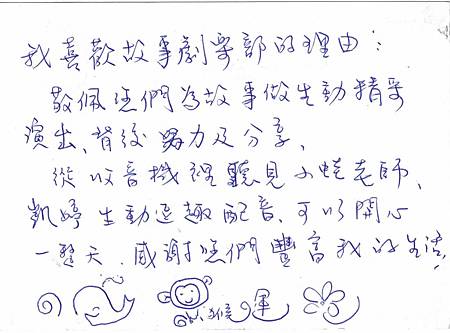 我喜歡故事劇樂部的理由：
敬佩您們為故事做生動精采
演出、背後努力及分享、
從收音機裡聽見小蛙老師、
凱婷生動逗趣配音、可以開心
一整天、感謝您們豐富我的生活。
猴運